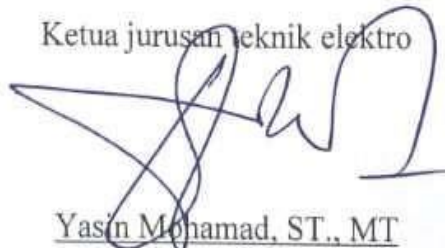 Ketua jurusan teknik elektro
Yasin Mohamad, ST., MT